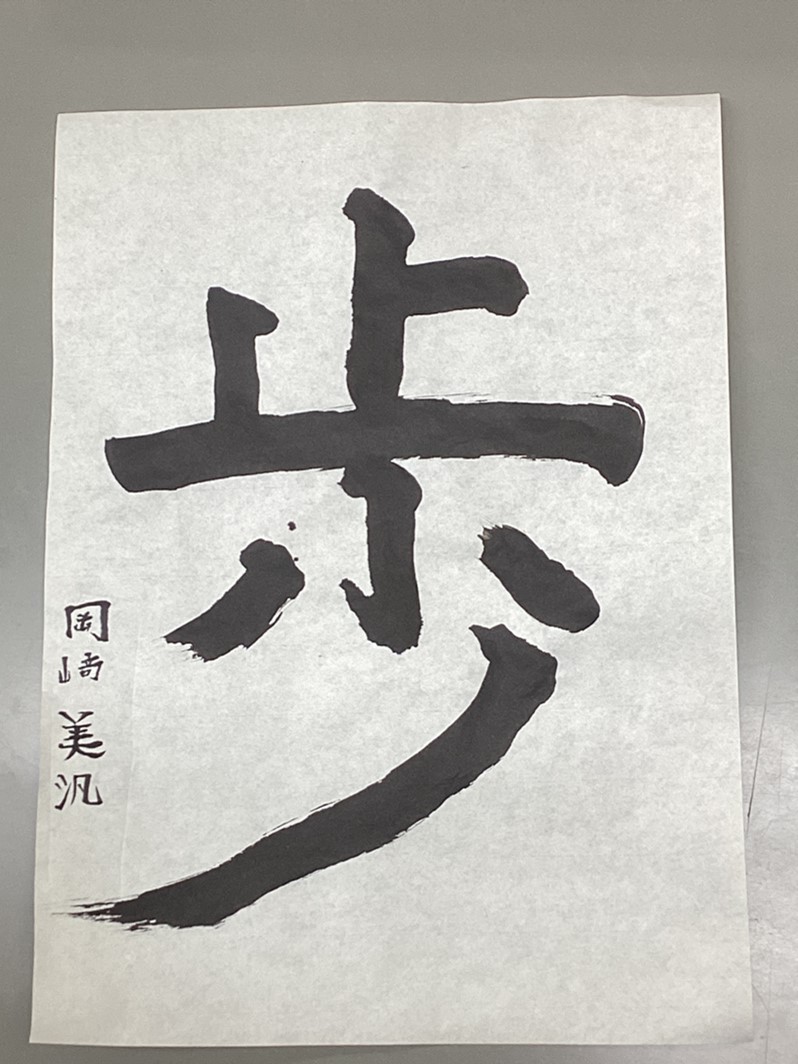 歩
岡崎美汎